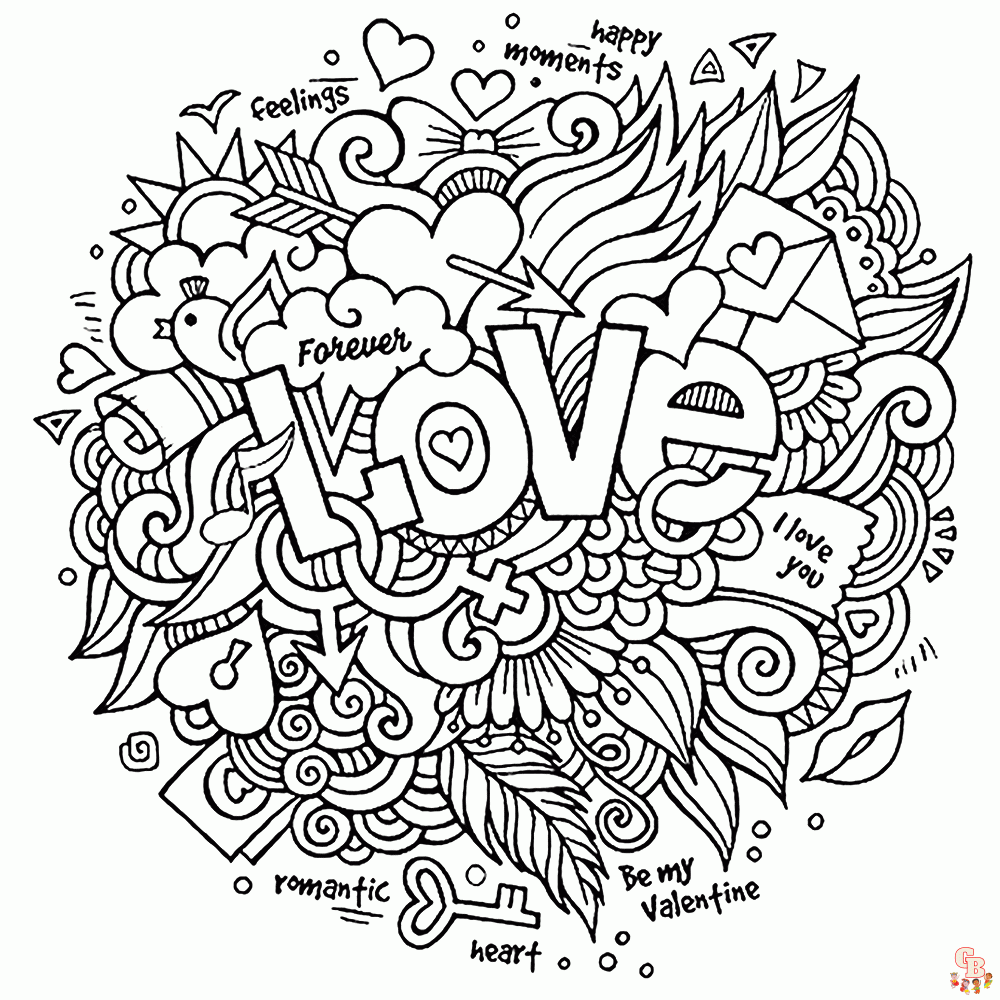 happy
moments
feelings
Forever
Love
I love
you
romantic
Be my
Valentine
heart
GB